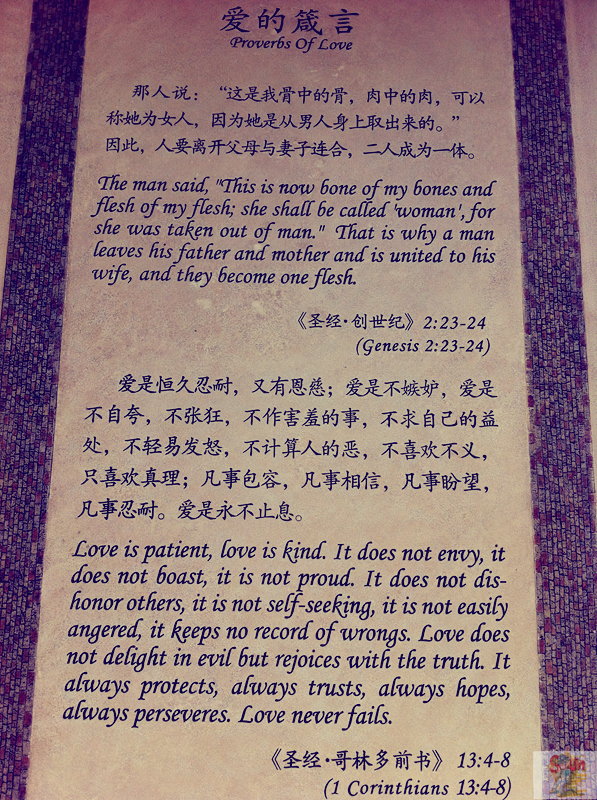 爱的箴言
Proverbs Of Love
那人说：“这是我骨中的骨，肉中的肉，可以
称她为女人，因为她是从男人身上取出来的。”
因此，人要离开父母与妻子连合，二人成为一体。
The man said, "This is now bone of my bones and
flesh of my flesh, she shall be called 'woman', for
she was taken out of man." That is why a man
leaves his father and mother and is united to his
wife, and they become one flesh.
《圣经·创世纪》2:23-24
(Genesis 2:23-24)
爱是恒久忍耐，又有恩慈；爱是不嫉妒，爱是
不自夸，不张狂，不作害羞的事，不求自己的益
处，不轻易发怒，不计算人的恶，不喜欢不义，
只喜欢真理；凡事包容，凡事相信，凡事盼望，
凡事忍耐。爱是永不止息。
Love is patient, love is kind. It does not envy, it
does not boast, it is not proud. It does not dis-
honor others, it is not self-seeking, it is not easily
angered, it keeps no record of wrongs. Love does
not delight in evil but rejoices with the truth. It
always protects, always trusts, always hopes,
always perseveres. Love never fails.
《圣经·哥林多前书》13:4-8
(1 Corinthians 13:4-8)